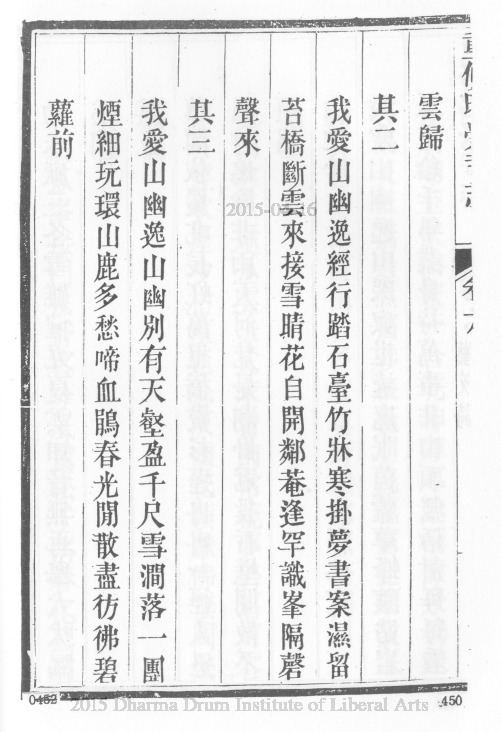 雲歸
其二
我愛山幽逸經行踏石臺竹牀寒掛夢書案濕留
苔橋斷雲來接雪晴花自開鄰菴逢罕識峯隔磬
聲來
其三
我愛山幽逸山幽別有天壑盈千尺雪澗落一團
煙細玩環山鹿多愁啼血鵑春光閒散盡彷彿碧
蘿前
0452
450
2015 Dharma Drum Institute of Liberal Arts